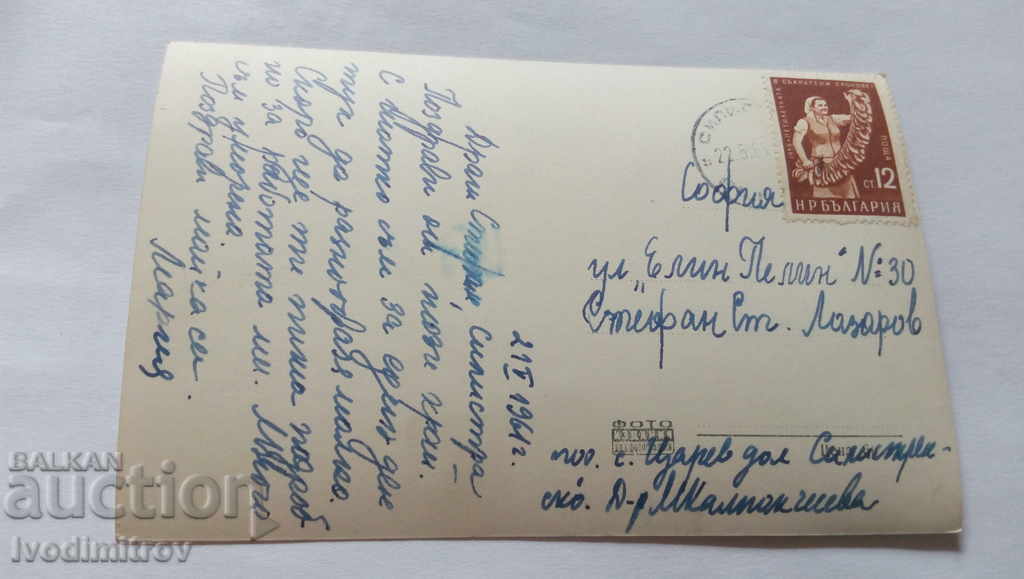 Силистра
21 V 1961 г.
Драги Стефан
Поздрави от този край.
С Златко съм за един ден
тук да разнообразя малко.
Скоро ще ти пиша подроб
но за работата ми. Много
съм уморена.
Поздрави майка си.
Мария
София
ул. "Елин Пелин" №: 30
Стефан Ст. Лазаров
ФОТО
под. с. Царев дол Силистрен-
ско. Д-р М Калпакчиева
22.5.61
ПОЩА
СТ. 12
НР БЪЛГАРИЯ
BALKAN
auction
Ivodimitrov